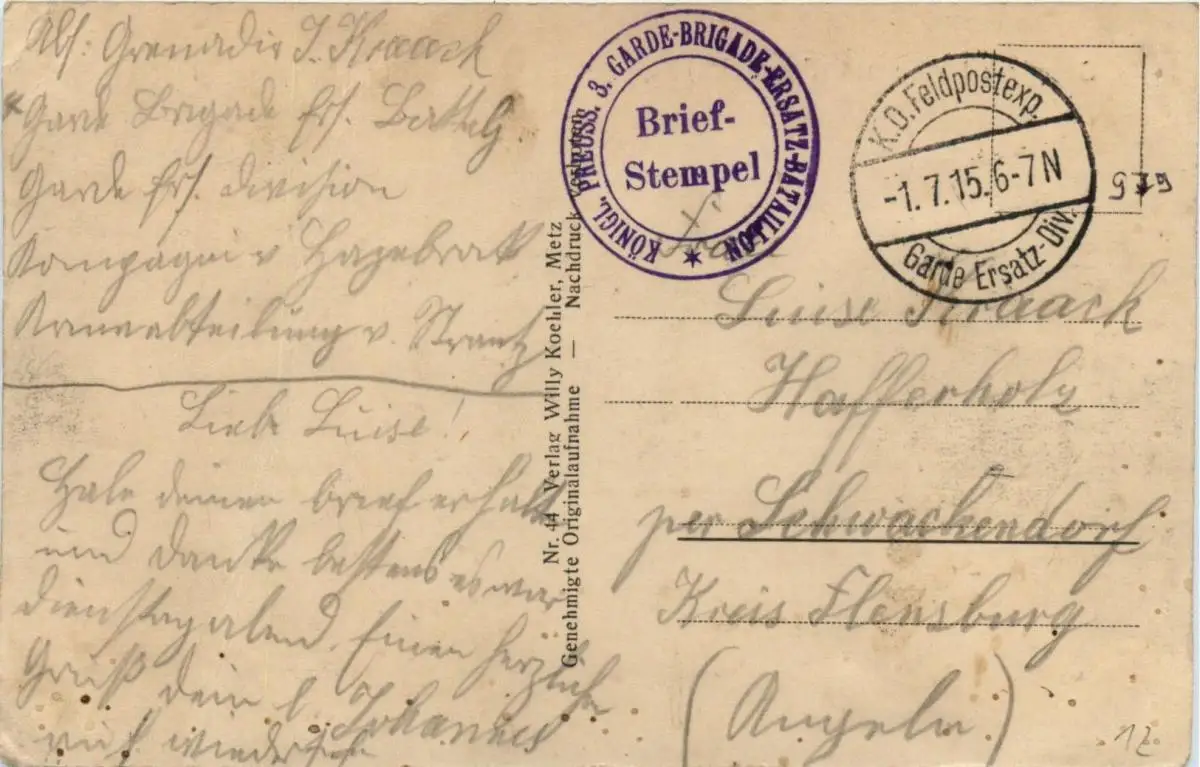 Abs: Grenadir J. Kraack
Garde Brigade Ers. Battl
Garde Ers. Division
Kompagnie v
v. Strantz
Liebe Luise!
Habe deinen brief erhalten
und danke bestens es war
dienstagabend. Einen herzliche
Gruß dein l. Johannes
auf wiedersehn
Nr. 44 Verlag Willy Koehler, Metz
Genehmigte Originalaufnahme — Nachdruck
KÖNIGL. PREUSS. 3. GARDE-BRIGADE-ERSATZ-BATAILLON
Brief-
Stempel
K.D. Feldpostexp.
-1.7.15. 6-7 N
Garde Ersatz-Div.
Luise Kraack
Hafferholz
per Schwackendorf
Kreis Flensburg
(Angeln)
12